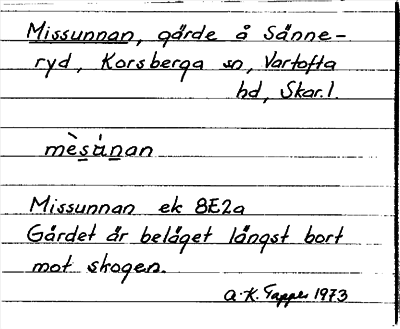 Missunnan, gärde å Sänne-
ryd, Korsberga sn, Vartofta
hd, Skar.l.
mèsúnan
Missunnan ek 8E2a
Gärdet är beläget längst bort
mot skogen.
A.K. Tapper 1973